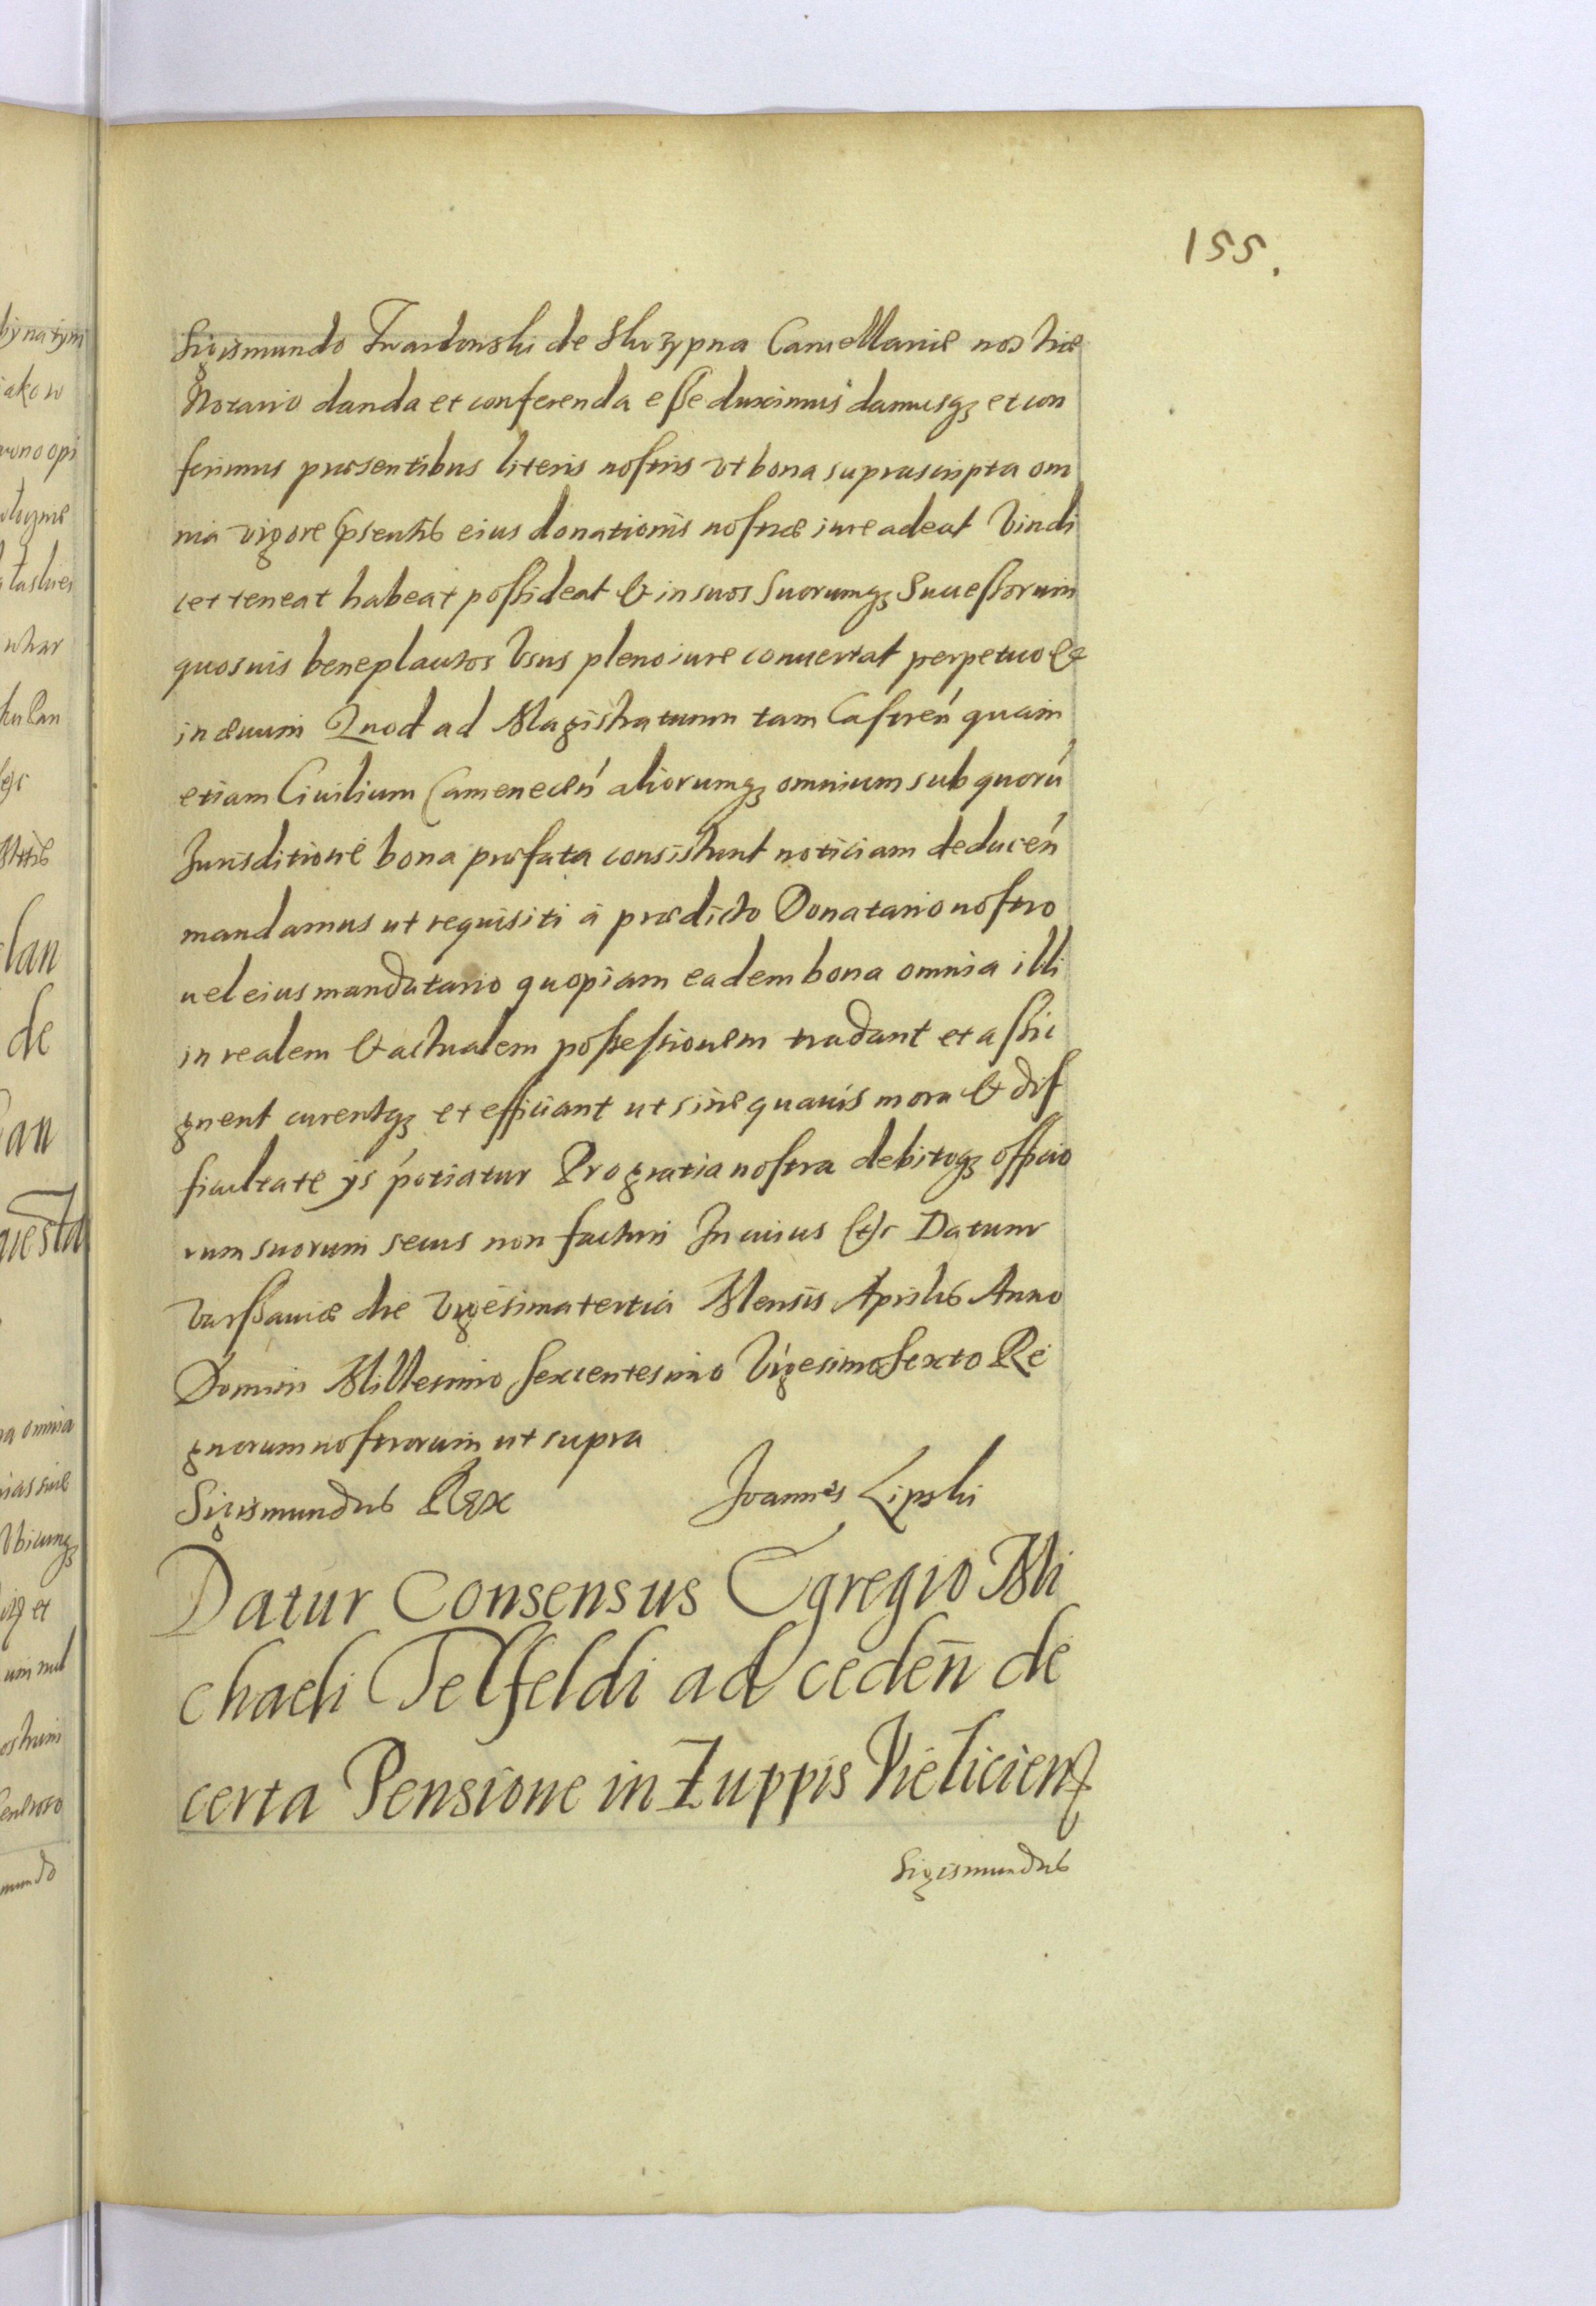 155.
Sigismundo Twardowski de Skrzypna Cancellariæ nostræ
Notario danda et conferenda esse duximus damusq3 et con
ferimus præsentibus literis nostris vt bona suprascripta om
nia vigore psentis eius donationis nostræ iure adeat Vindi
cet teneat habeat possideat & in suos Suorumq3 Successorum
quosuis beneplacitos Vsus pleno iure conuertat perpetuo &
in æuum Quod ad Magistratuum tam Castren quam
etiam Ciuilium Camenecen aliorumq3 omnium sub quorú
Jurisditione bona præfata consistunt noticiam deducén
mandamus ut requisiti á prædicto Donatario nostro
uel eius mandatario quopiam eadem bona omnia illi
in realem & actualem possessionem tradant et assi
gnent curentq3 et efficiant ut sine quauis mora & dif
ficultate ijs potiatur Pro gratia nostra debitoq3 officio
rum suorum secus non facturi In cuius etc Datum
Varssauiæ die Vigesima tertia Mensis Aprilis Anno
Domini Millesimo Sexcentesimo Vigesimo Sexto Re
gnorum nostrorum ut supra
Sigismundus Rex Joannes Lipski
Datur Consensus Egregio Mi
chaeli Telfeldi ad ceden̄ de
certa Pensione in Zuppis Vieliciens
Sigismundus